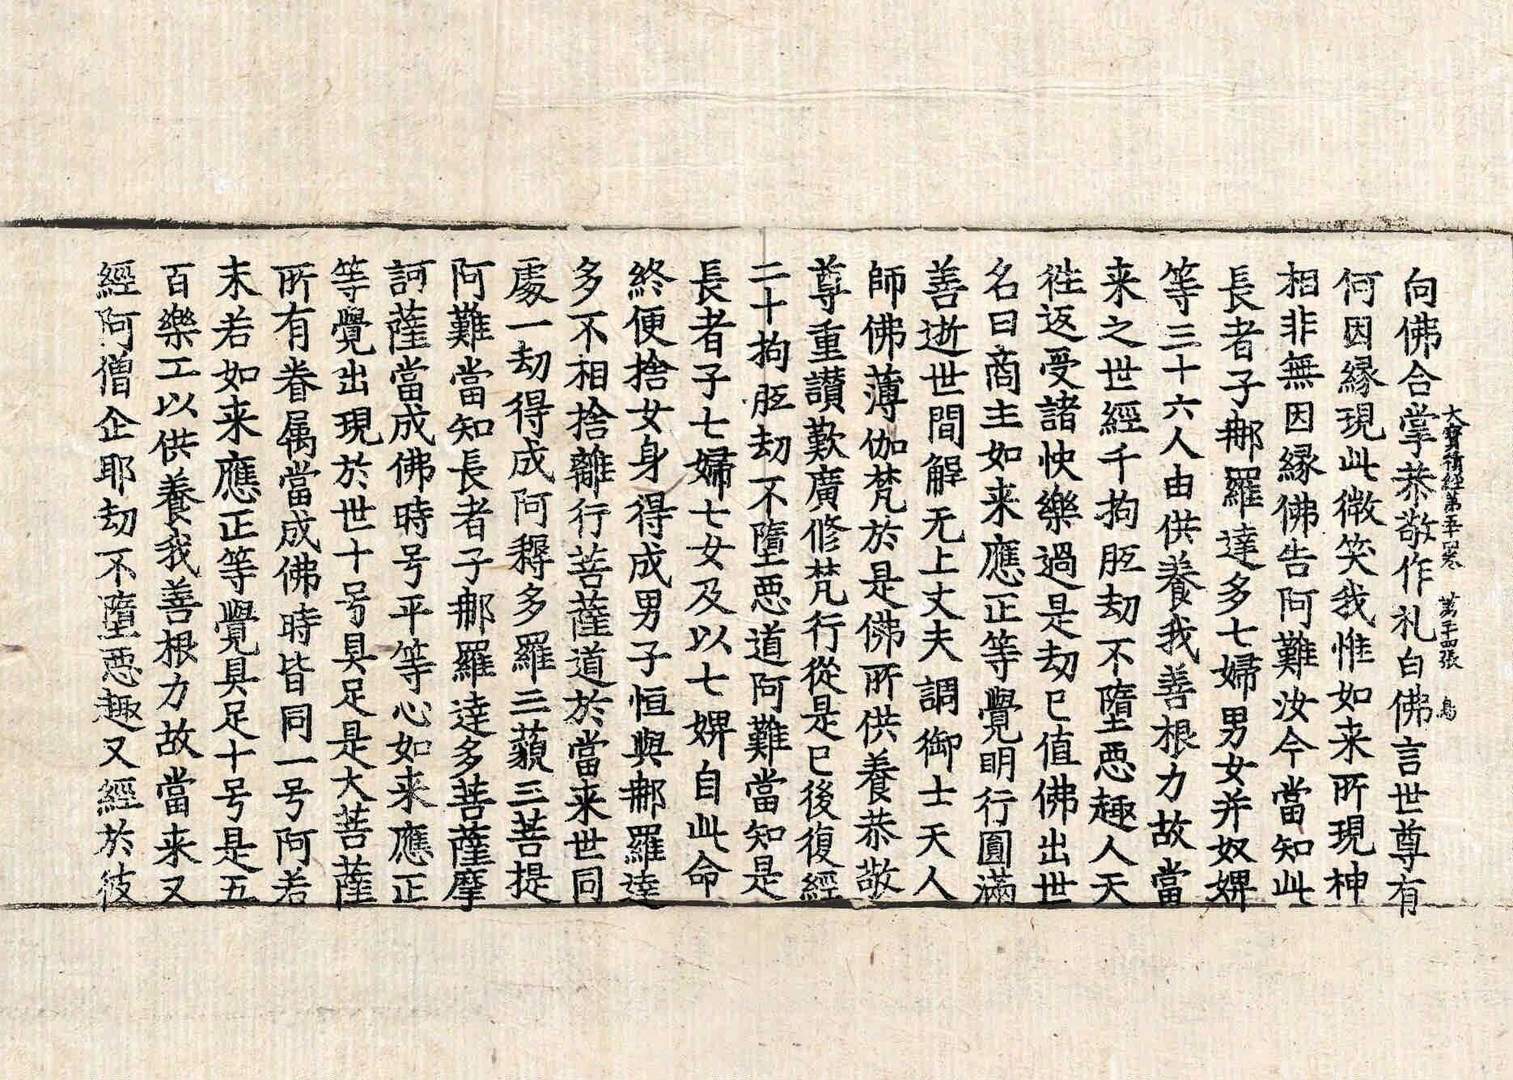 大寶積經第五十四卷　第二十四張　鳥
向佛合掌恭敬作礼白佛言世尊有
何因緣現此微笑我惟如来所現神
相非無因緣佛告阿難汝今當知此
長者子郍羅達多七婦男女并奴婢
等三十六人由供養我善根力故當
来之世經千拘胝劫不墮惡趣人天
徃返受諸快樂過是劫巳值佛出世
名曰商主如来應正等覺明行圓滿
善逝世間解无上丈夫調御士天人
師佛薄伽梵於是佛所供養恭敬
尊重讃歎廣修梵行從是巳後復經
二十拘胝劫不墮惡道阿難當知是
長者子七婦七女及以七婢自此命
終便捨女身得成男子恒與郍羅達
多不相捨離行菩薩道於當来世同
處一劫得成阿耨多羅三藐三菩提
阿難當知長者子郍羅達多菩薩摩
訶薩當成佛時号平等心如来應正
等覺出現於世十号具足是大菩薩
所有眷属當成佛時皆同一号阿若
末若如来應正等覺具足十号是五
百樂工以供養我善根力故當来又
經阿僧企耶劫不墮惡趣又經於彼